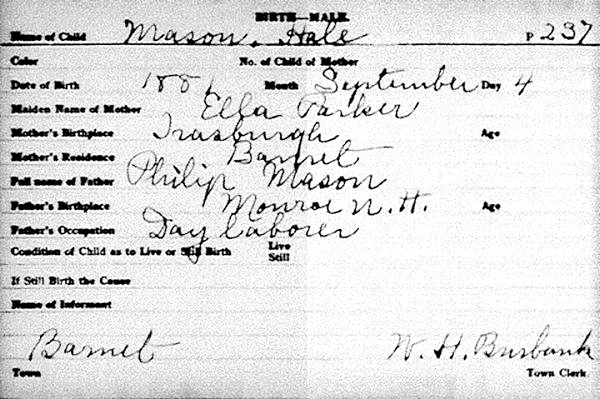 BIRTH—MALE.
Name of Child Mason, Hale P 237
Color No. of Child of Mother
Date of Birth 1881 Month September Day 4
Maiden Name of Mother Ella Parker
Mother's Birthplace Irasburgh Age
Mother's Residence Barnet
Full name of Father Philip Mason
Father's Birthplace Monroe N.H. Age
Father's Occupation Day laborer
Condition of Child as to Live or Still Birth Live
Still
If Still Birth the Cause
Name of Informant
Barnet W. H. Burbank
Town Town Clerk.